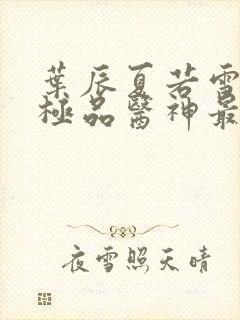 葉辰夏若雪
極品醫神最
夜雪照天晴